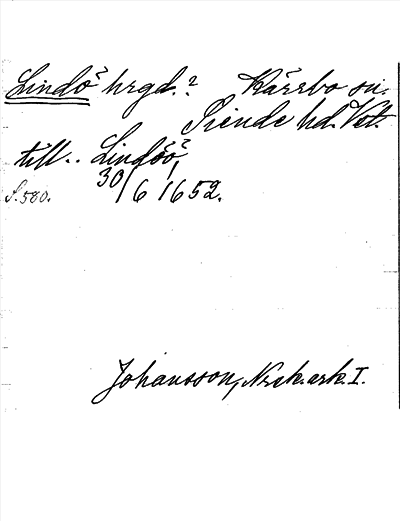 Lindö? hrgd.? Kärrbo sn.
Siende hd. Vstm.
till.. Lindöö?,
S. 580. 30/6 1652.
Johansson, Nork. ark. I.